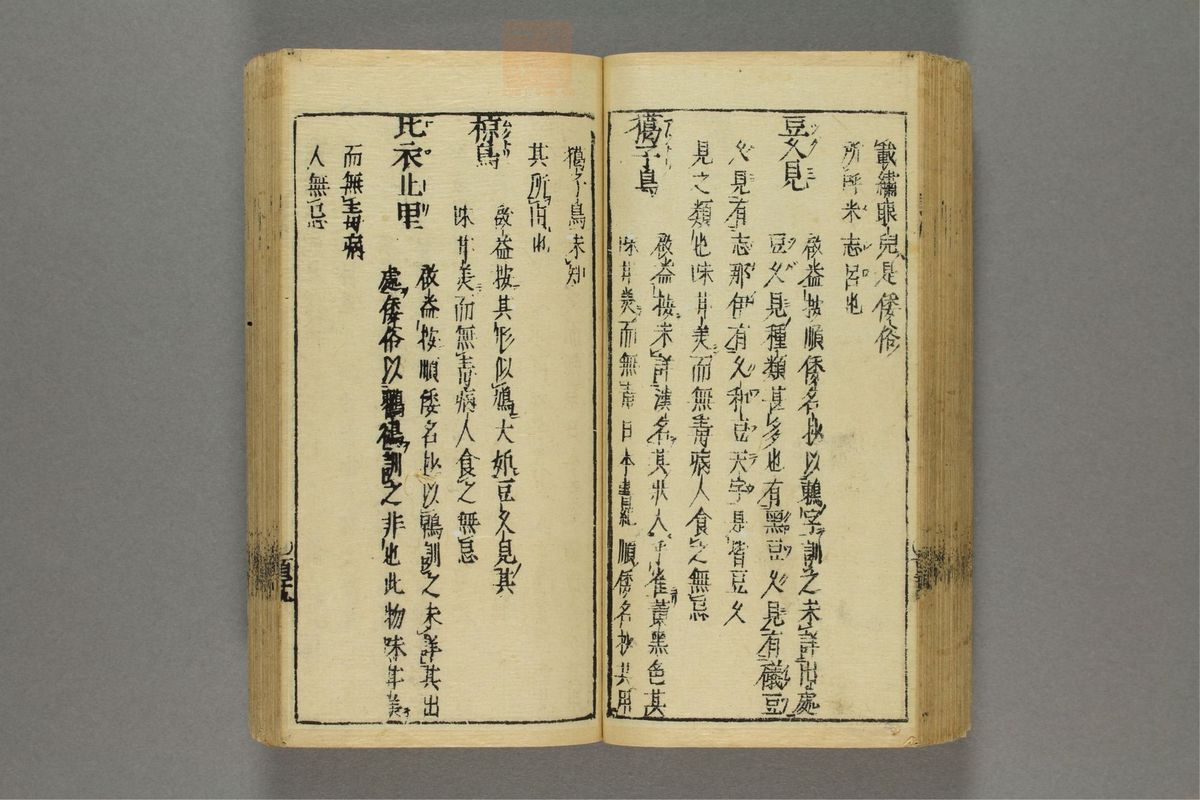 載繡眼兒是倭俗
所呼米志呂也
豆久見
啟益按順倭名抄以鶫字訓之未詳出處
豆久見種類甚多也有黑豆久見有磯豆
久見有志那伊有久和豆天字是皆豆久
見之類也味甘美而無毒病人食之無忌
獦子鳥
啟益按未詳漢名其狀大乎雀黃黑色其
味甘美而無毒日本書紀順倭名抄共用
獦子鳥未知
其所由也
椋鳥
啟益按其形似鴉大如豆久見其
味甘美而無毒病人食之無忌
比衣止里
啟益按順倭名抄以鵯訓之未詳其出
處倭俗以訓之非也此物味甘美
而無毒病
人無忌